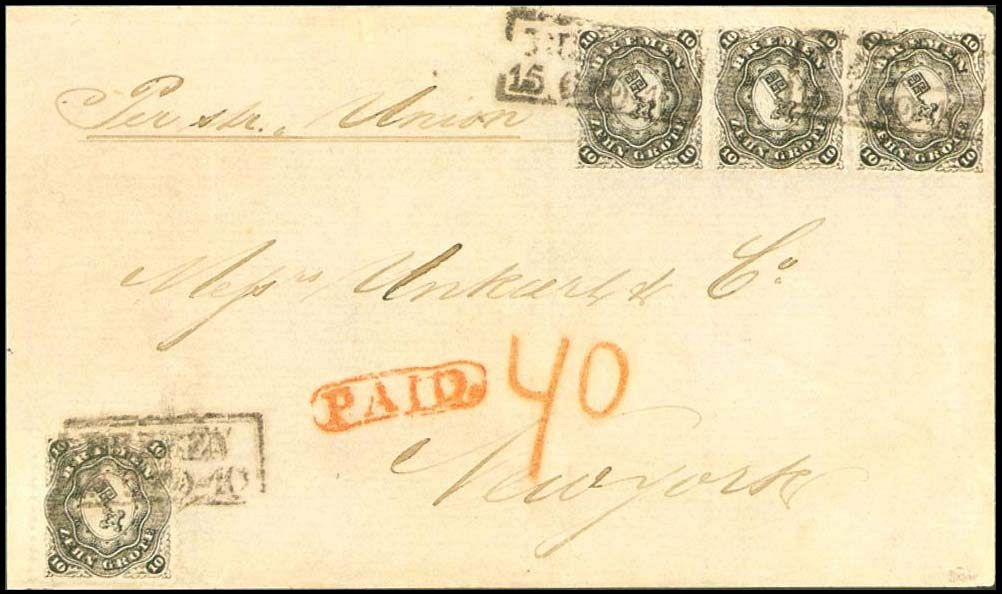 Per str. Union
10 10
BREMEN
ZEHN GROTE
10 10
10 10
BREMEN
ZEHN GROTE
10 10
10 10
BREMEN
ZEHN GROTE
10 10
15 6
Messrs Unkart & Co
PAID. 40
New York
10 10
BREMEN
ZEHN GROTE
10 10